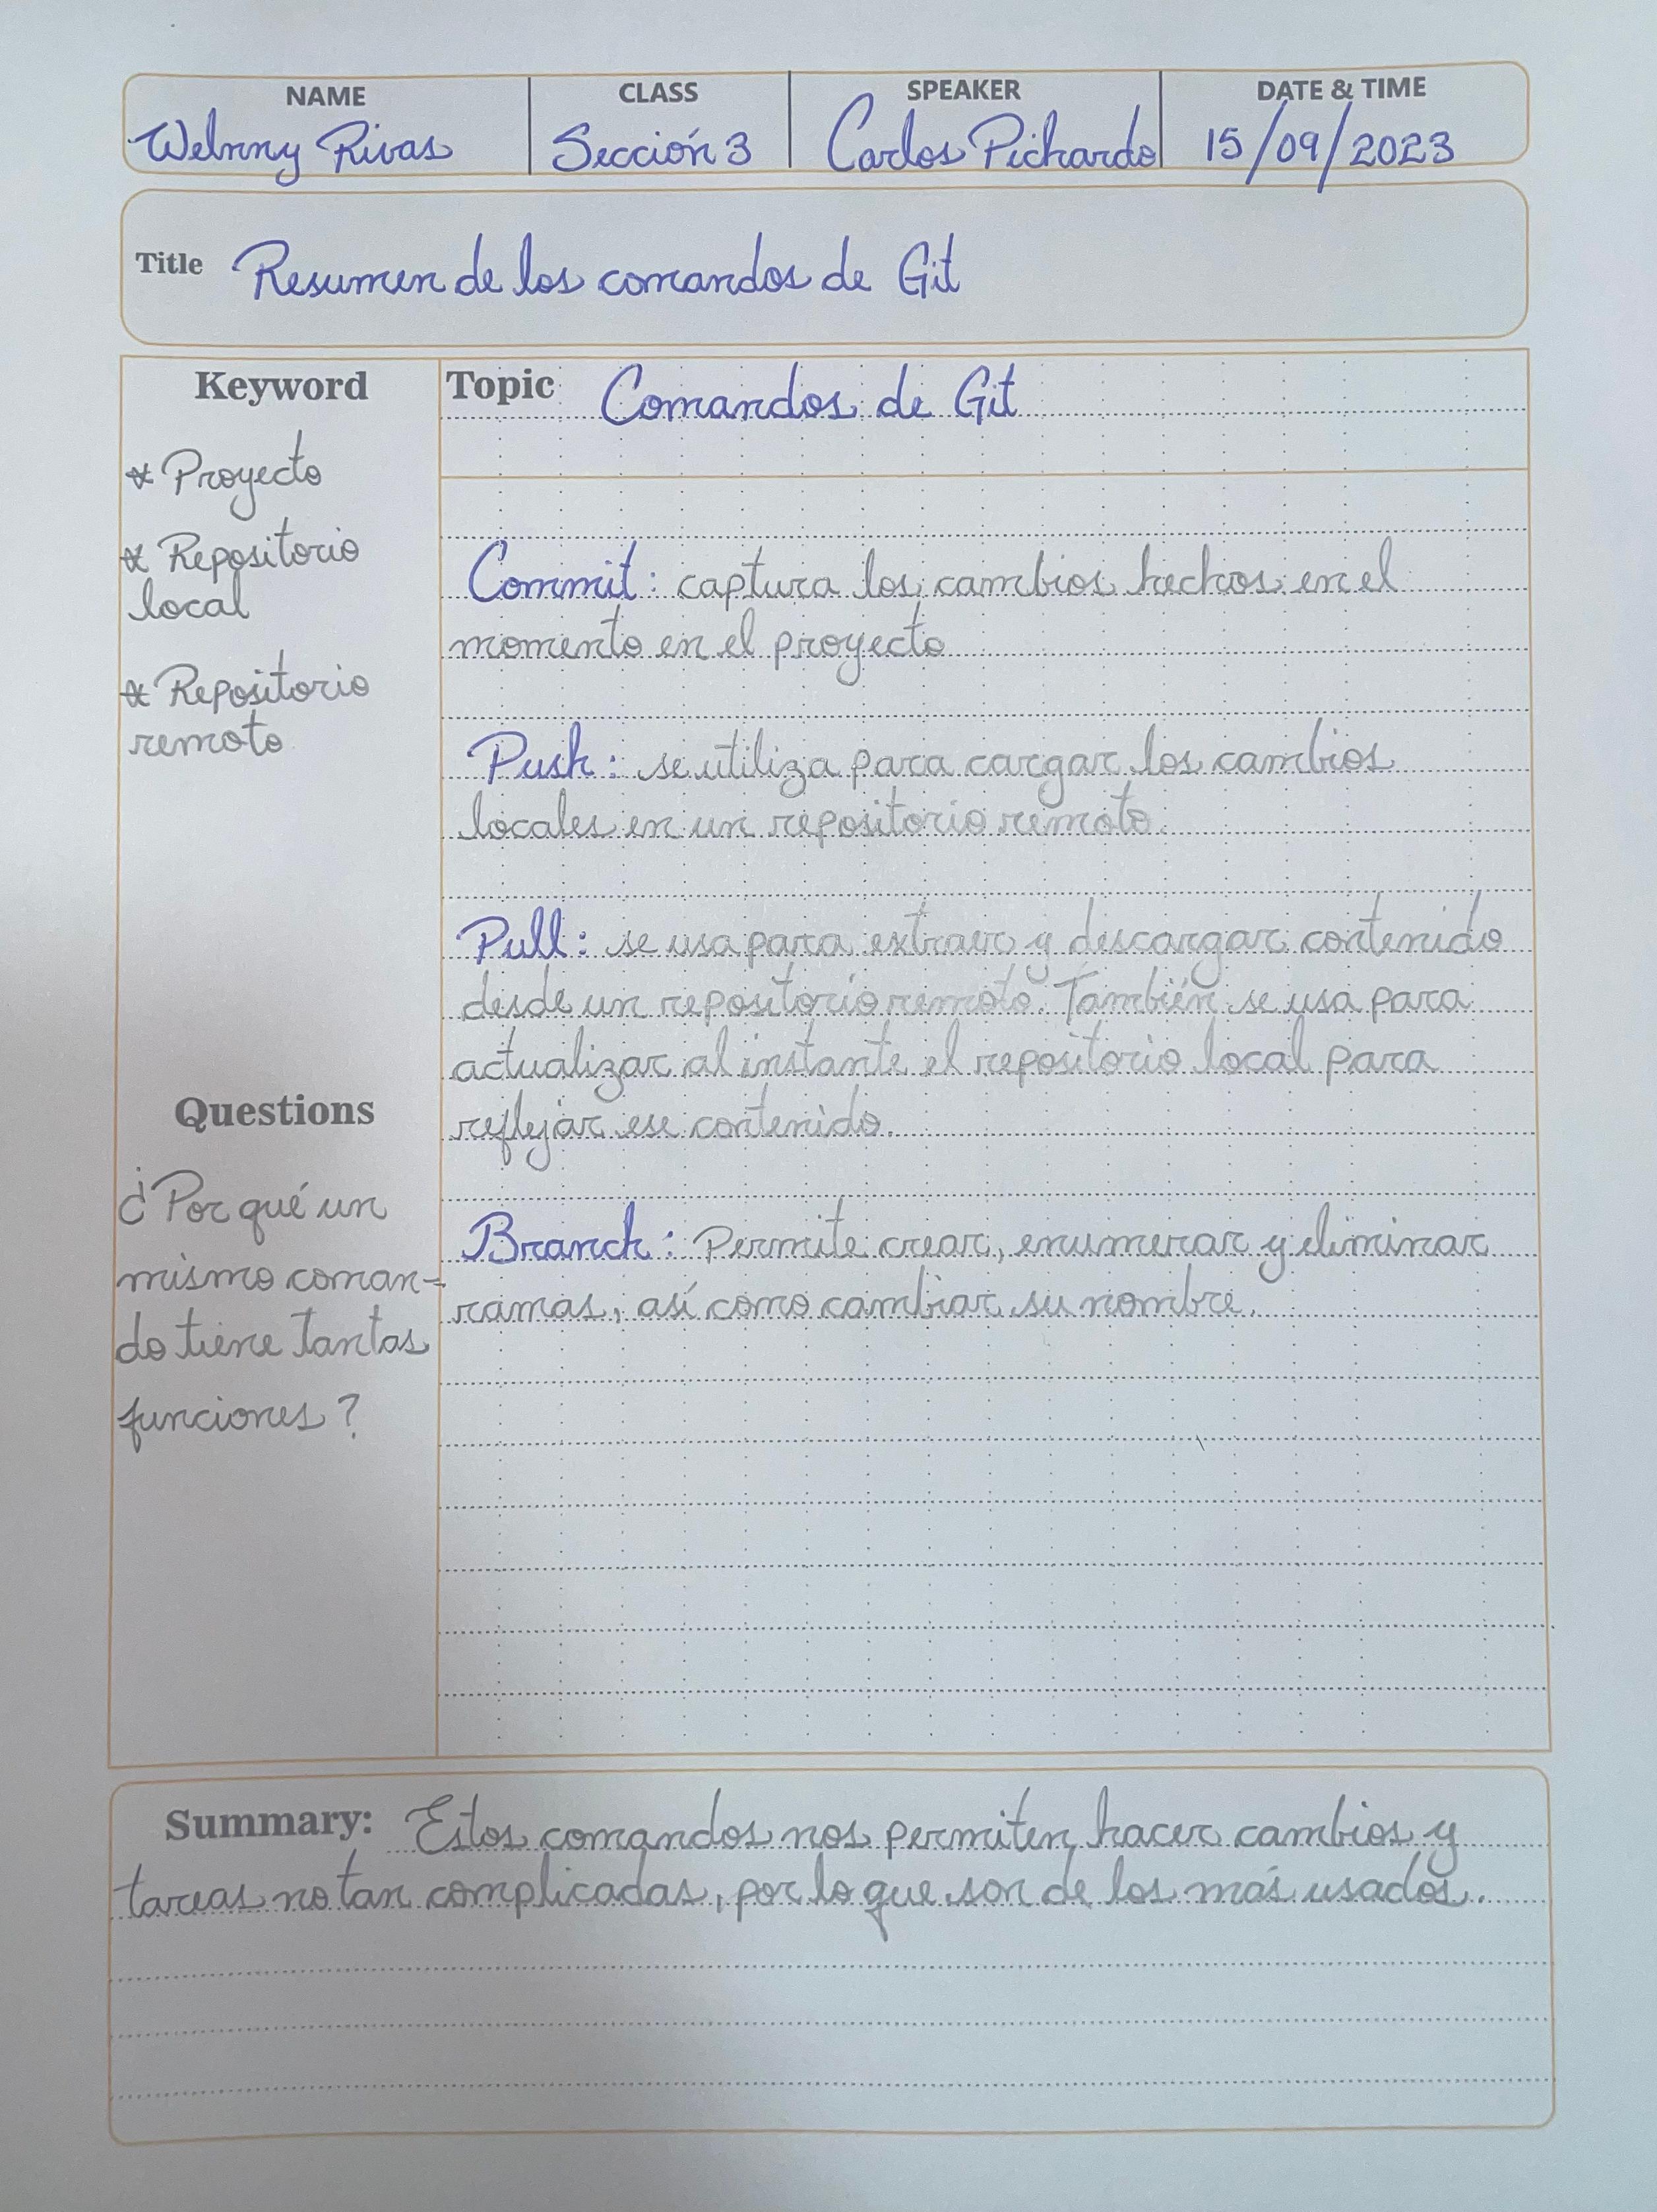 NAME CLASS SPEAKER DATE & TIME
Welnny Rivas Sección 3 Carlos Pichardo 15/09/2023
Title Resumen de los comandos de Git
Keyword
* Proyecto
* Repositorio
local
* Repositorio
remoto
Questions
¿Por qué un
mismo coman-
do tiene tantas
funciones?
Topic Comandos de Git
Commit: captura los cambios hechos en el
momento en el proyecto
Push: se utiliza para cargar los cambios
locales en un repositorio remoto.
Pull: se usa para extraer y descargar contenido
desde un repositorio remoto. También se usa para
actualizar al instante el repositorio local para
reflejar ese contenido.
Branch: Permite crear, enumerar y eliminar
ramas, así como cambiar su nombre.
Summary: Estos comandos nos permiten hacer cambios y
tareas no tan complicadas, por lo que son de los más usados.